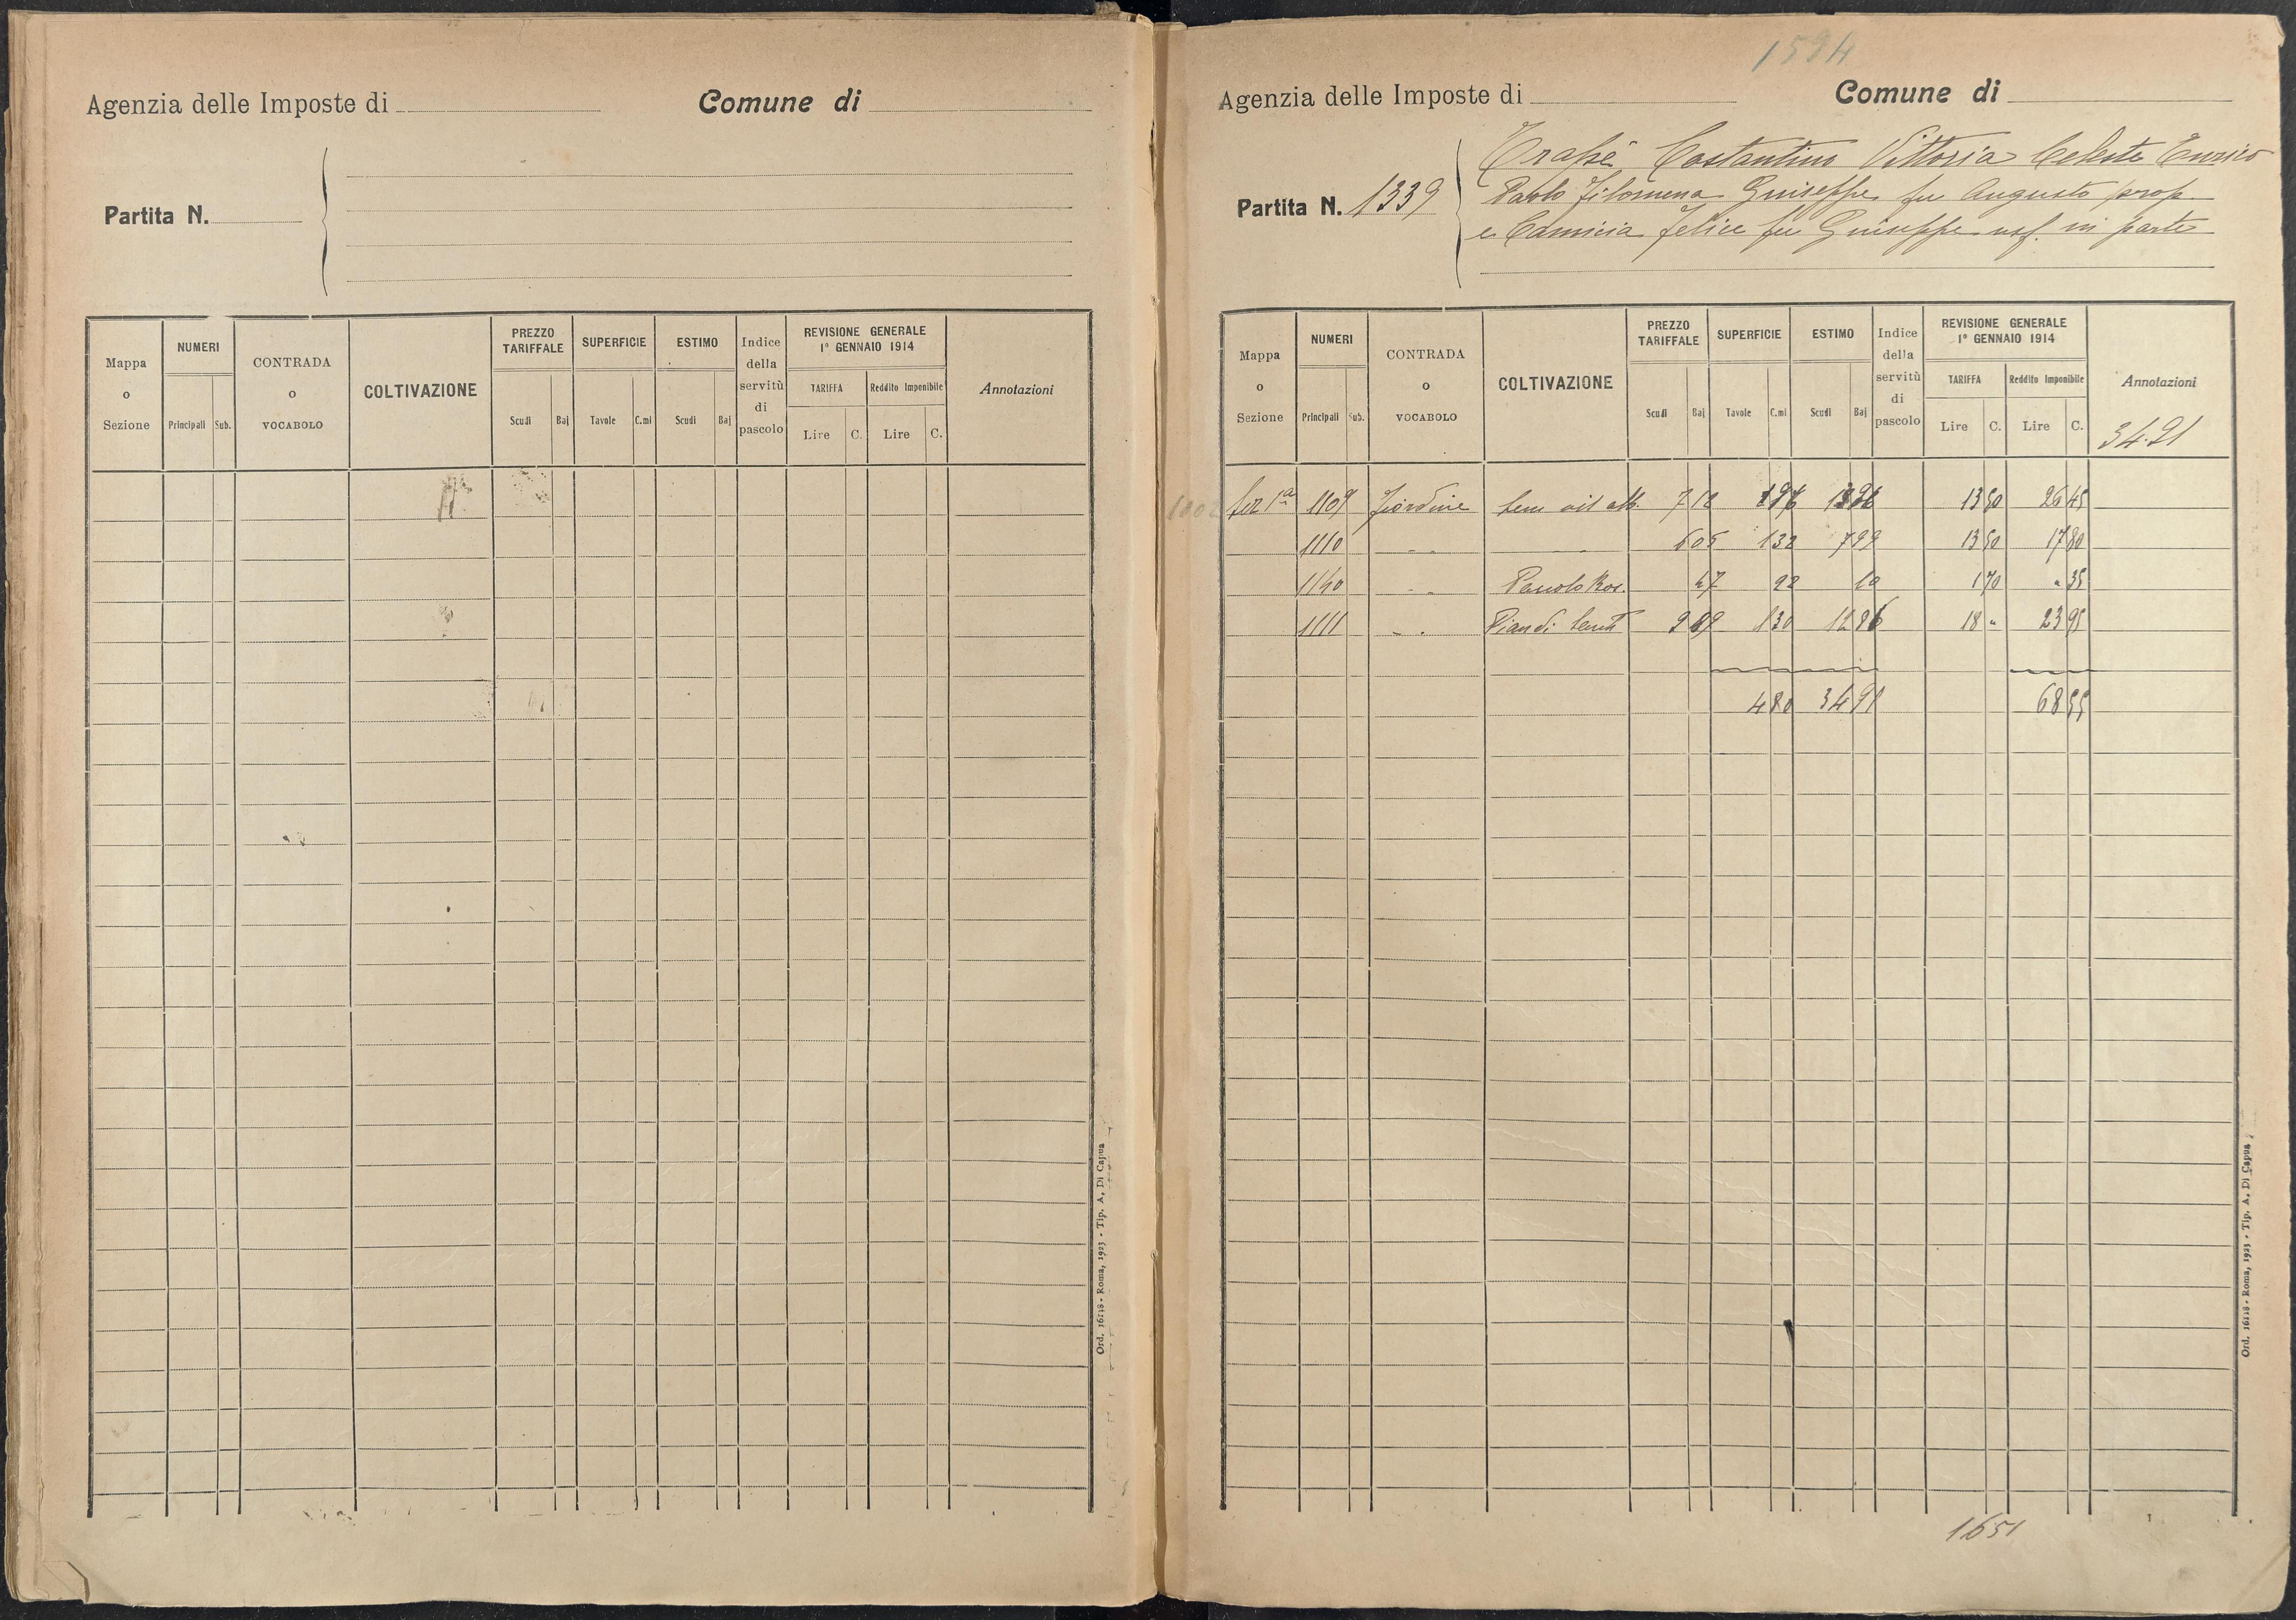 Agenzia delle Imposte di Comune di
Partita N.
Mappa o Sezione
NUMERI
Principali Sub.
CONTRADA o VOCABOLO
COLTIVAZIONE
PREZZO TARIFFALE
Scudi Baj
SUPERFICIE
Tavole C.mi
ESTIMO
Scudi Baj
Indice della servitù di pascolo
REVISIONE GENERALE
1° GENNAIO 1914
TARIFFA Reddito Imponibile
Lire C. Lire C.
Annotazioni
Ord. 16118 - Roma, 1923 - Tip. A. Di Capua
1594
Agenzia delle Imposte di Comune di
Costantino Vittoria Celeste Enrico
Partita N. 1339 Paolo Filomena Giuseppe fu Augusto prop.
e Camicia Felice fu Giuseppe usf. in parte
Mappa o Sezione
NUMERI
Principali Sub.
CONTRADA o VOCABOLO
COLTIVAZIONE
PREZZO TARIFFALE
Scudi Baj
SUPERFICIE
Tavole C.mi
ESTIMO
Scudi Baj
Indice della servitù di pascolo
REVISIONE GENERALE
1° GENNAIO 1914
TARIFFA Reddito Imponibile
Lire C. Lire C.
Annotazioni
34.91
1002 Sez 1a 1109 Fiordine Sem vit alb. 7 12 1 96 13 96 13 50 26 45
1110 " " " 6 05 1 32 7 99 13 50 17 80
1140 " " 47 22 10 1 70 " 35
1111 " " 9 89 1 30 12 86 18 " 23 95
4 80 34 91 68 55
Ord. 16118 - Roma, 1923 - Tip. A. Di Capua
1651